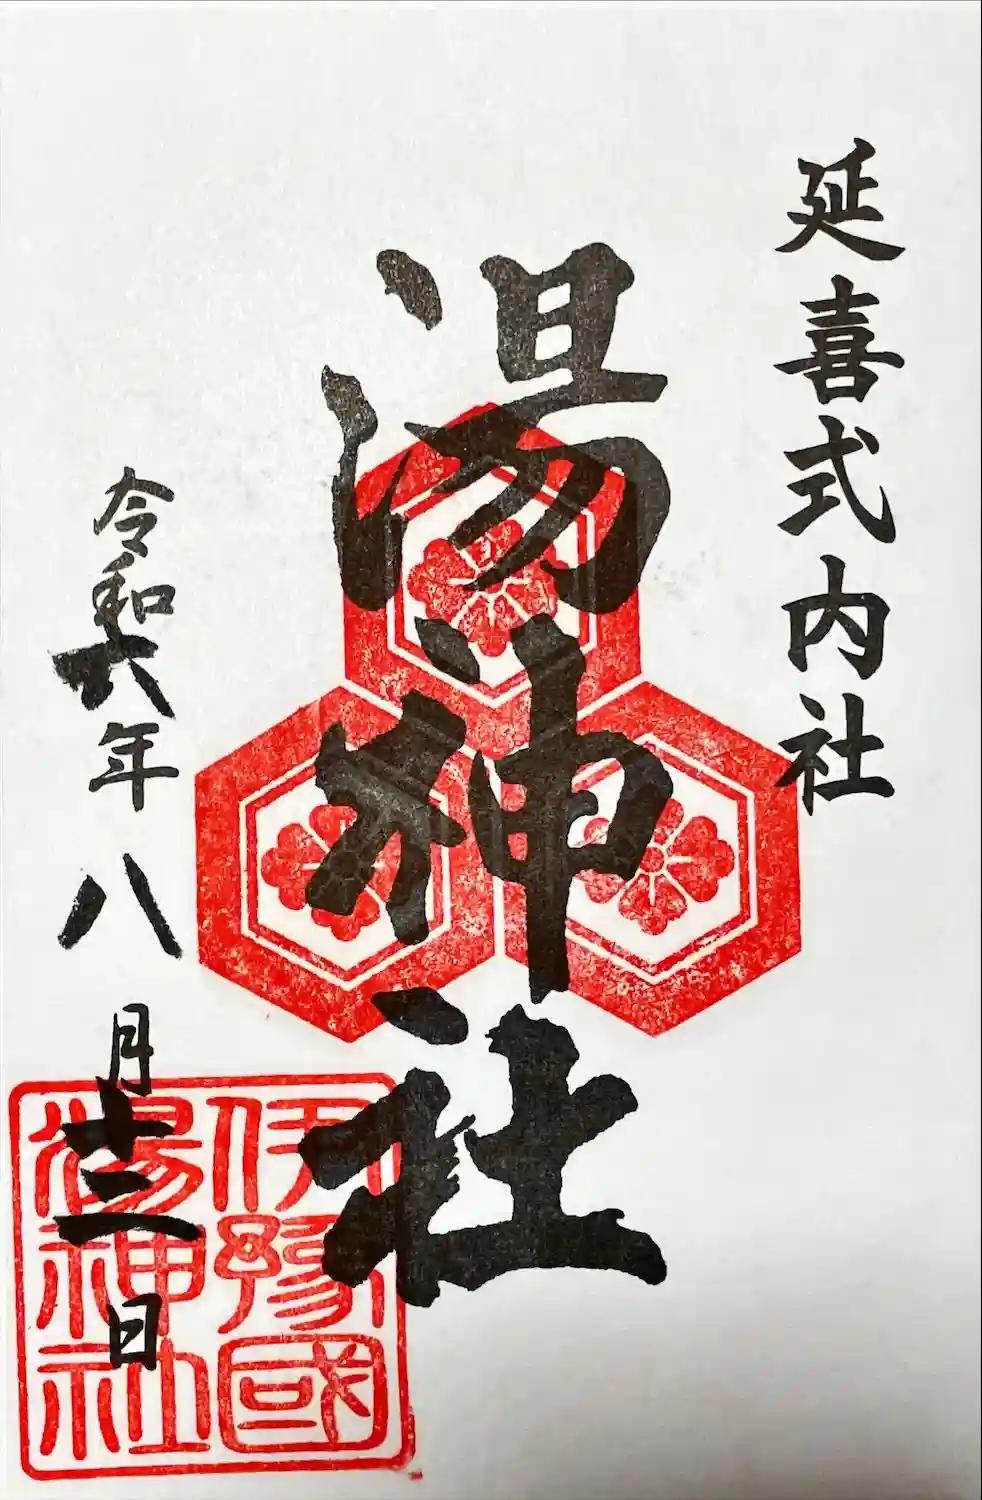 延喜式内社
湯神社
令和六年八月十二日
伊豫國
湯神社